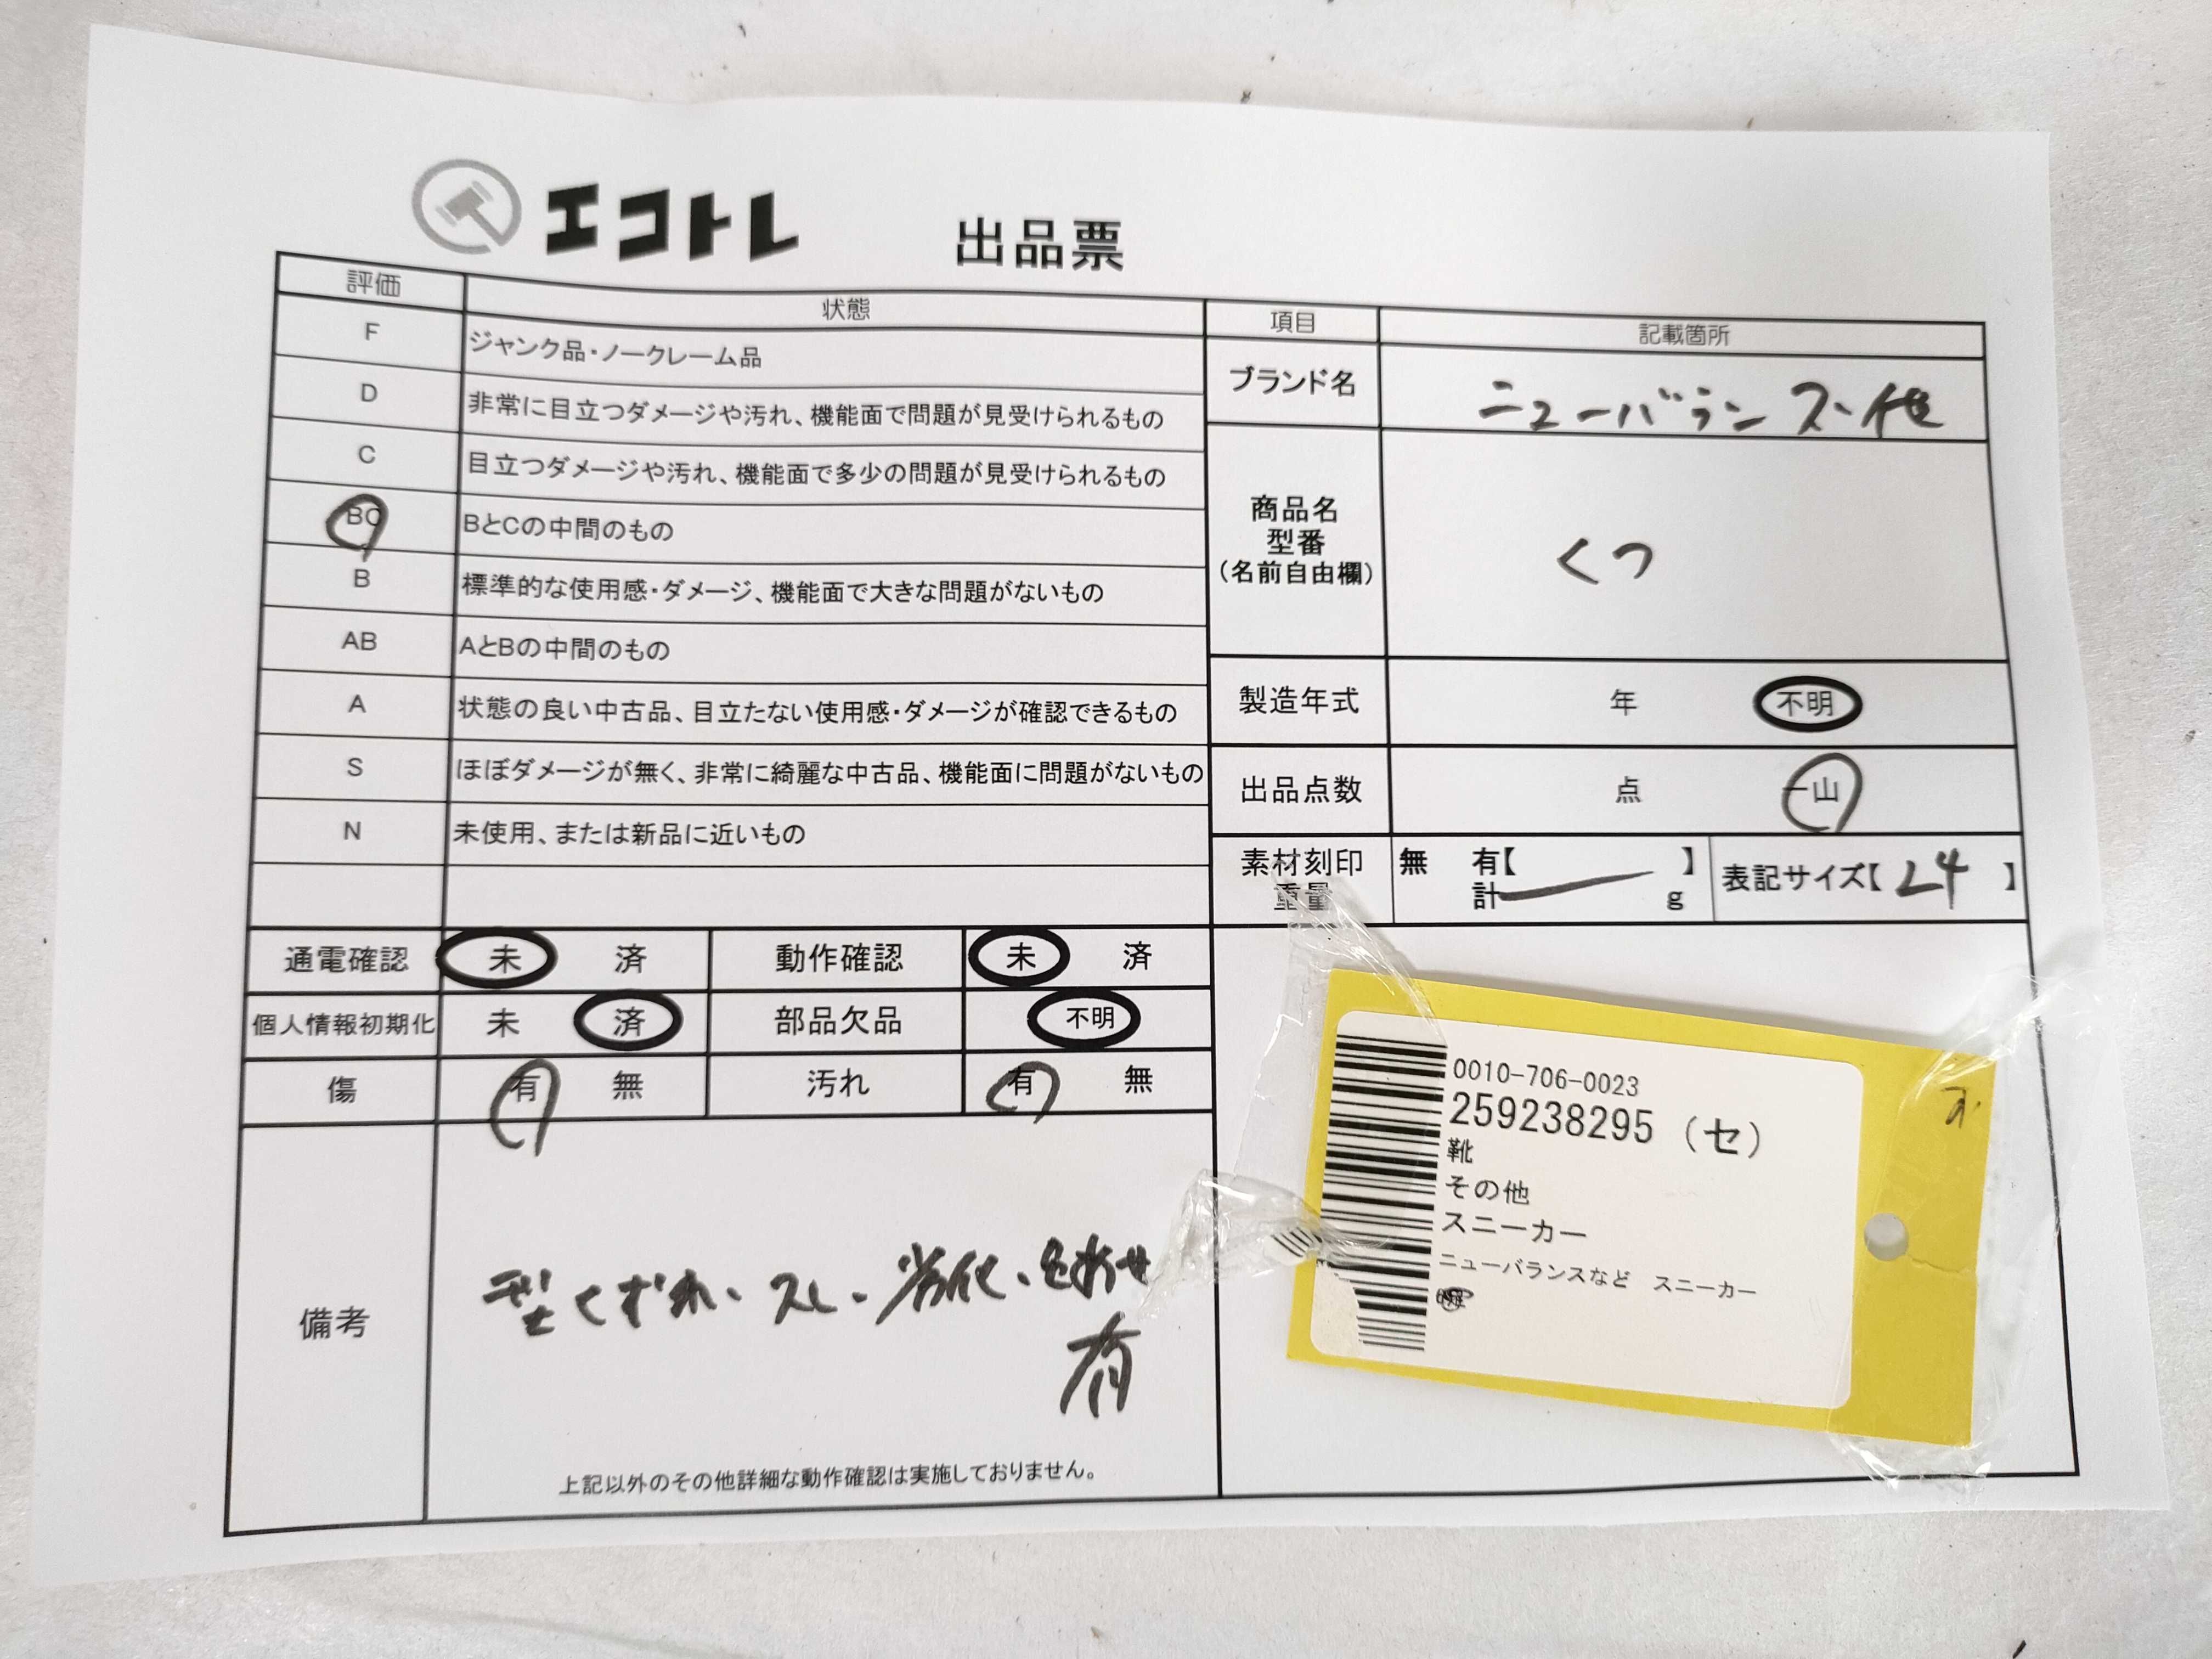 エコトレ 出品票
評価 状態
F ジャンク品・ノークレーム品
D 非常に目立つダメージや汚れ、機能面で問題が見受けられるもの
C 目立つダメージや汚れ、機能面で多少の問題が見受けられるもの
BC BとCの中間のもの
B 標準的な使用感・ダメージ、機能面で大きな問題がないもの
AB AとBの中間のもの
A 状態の良い中古品、目立たない使用感・ダメージが確認できるもの
S ほぼダメージが無く、非常に綺麗な中古品、機能面に問題がないもの
N 未使用、または新品に近いもの
項目 記載箇所
ブランド名 ニューバランス・他
商品名
型番
(名前自由欄)
くつ
製造年式 年 不明
出品点数 点 一山
素材刻印 無 有【 】
重量 計 g
表記サイズ【 24 】
通電確認 未 済 動作確認 未 済
個人情報初期化 未 済 部品欠品 不明
傷 有 無 汚れ 有 無
備考
型くずれ、スレ、劣化、色あせ
有
上記以外のその他詳細な動作確認は実施しておりません。
0010-706-0023
259238295 (セ)
靴
その他
スニーカー
ニューバランスなど スニーカー